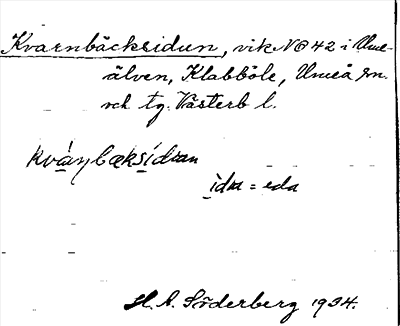 Kvarnbäcksidun, vik NO 42 i Ume-
älven, Klabböle, Umeå sn.
och tg. Västerb l.
kvá̱ŋbæksí̱dɐn
i̱dɐ = eda
H. A. Söderberg 1934.